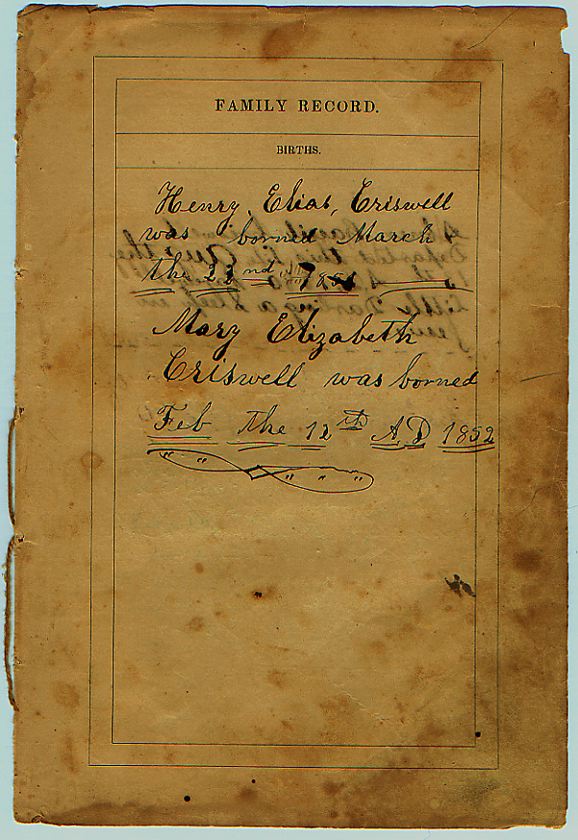 FAMILY RECORD.
BIRTHS.
Henry, Elias, Criswell
was borned March
the 22nd
Mary Elizabeth
Criswell was borned
Feb the 12th A,D 1852